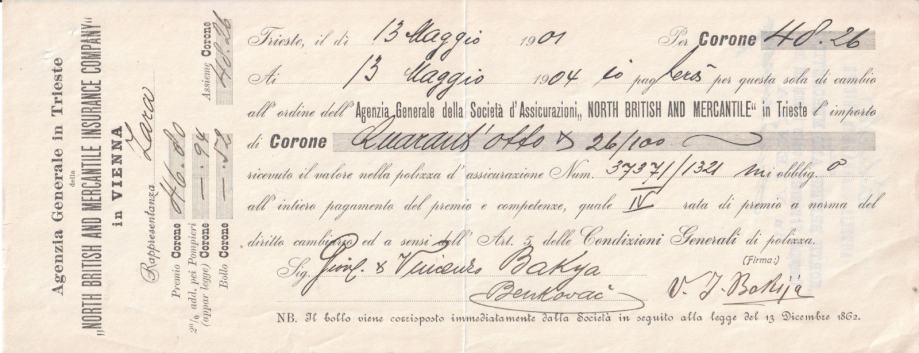 Agenzia Generale in Trieste
della
„NORTH BRITISH AND MERCANTILE INSURANCE COMPANY"
in VIENNA
Rappresentanza Zara
Premio Corone 46.80
2% add. pei Pompieri
(oppar legge) Corone —.94
Bollo Corone —.52
Assieme Corone 48.26
Trieste, il dì 13 Maggio 1901 Per Corone 48.26
Ai 13 Maggio 1904 io pagherò per questa sola di cambio
all'ordine dell'Agenzia Generale della Società d'Assicurazioni „NORTH BRITISH AND MERCANTILE" in Trieste l'importo
di Corone Quarant'otto & 26/100
ricevuto il valore nella polizza d'assicurazione Num. 37371/1321 mi obblig. o
all'intiero pagamento del premio e competenze, quale IV rata di premio a norma del
diritto cambiario ed a sensi dell'Art. 5 delle Condizioni Generali di polizza.
(Firma:)
Sig. & Vincenzo Bakya
Benkovač V. J. Bakija
NB. Il bollo viene corrisposto immediatamente dalla Società in seguito alla legge del 13 Dicembre 1862.